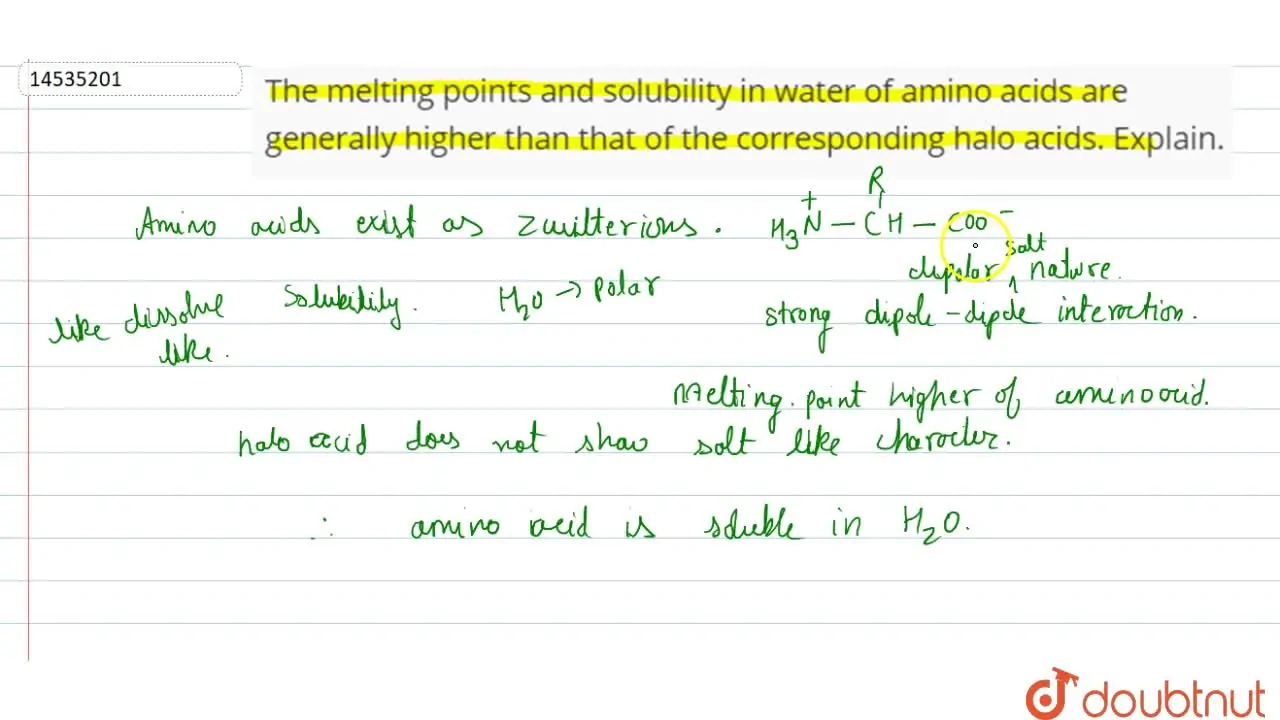 14535201
The melting points and solubility in water of amino acids are
generally higher than that of the corresponding halo acids. Explain.
R
Amino acids exist as Zwitterions. H₃N⁺ — CH — COO⁻
salt
dipolar ∧ nature.
like dissolve like. Solubility. H₂O → polar
strong dipole-dipole interaction.
Melting. point higher of aminoacid.
halo acid does not show salt like character.
∴ amino acid is soluble in H₂O.
doubtnut